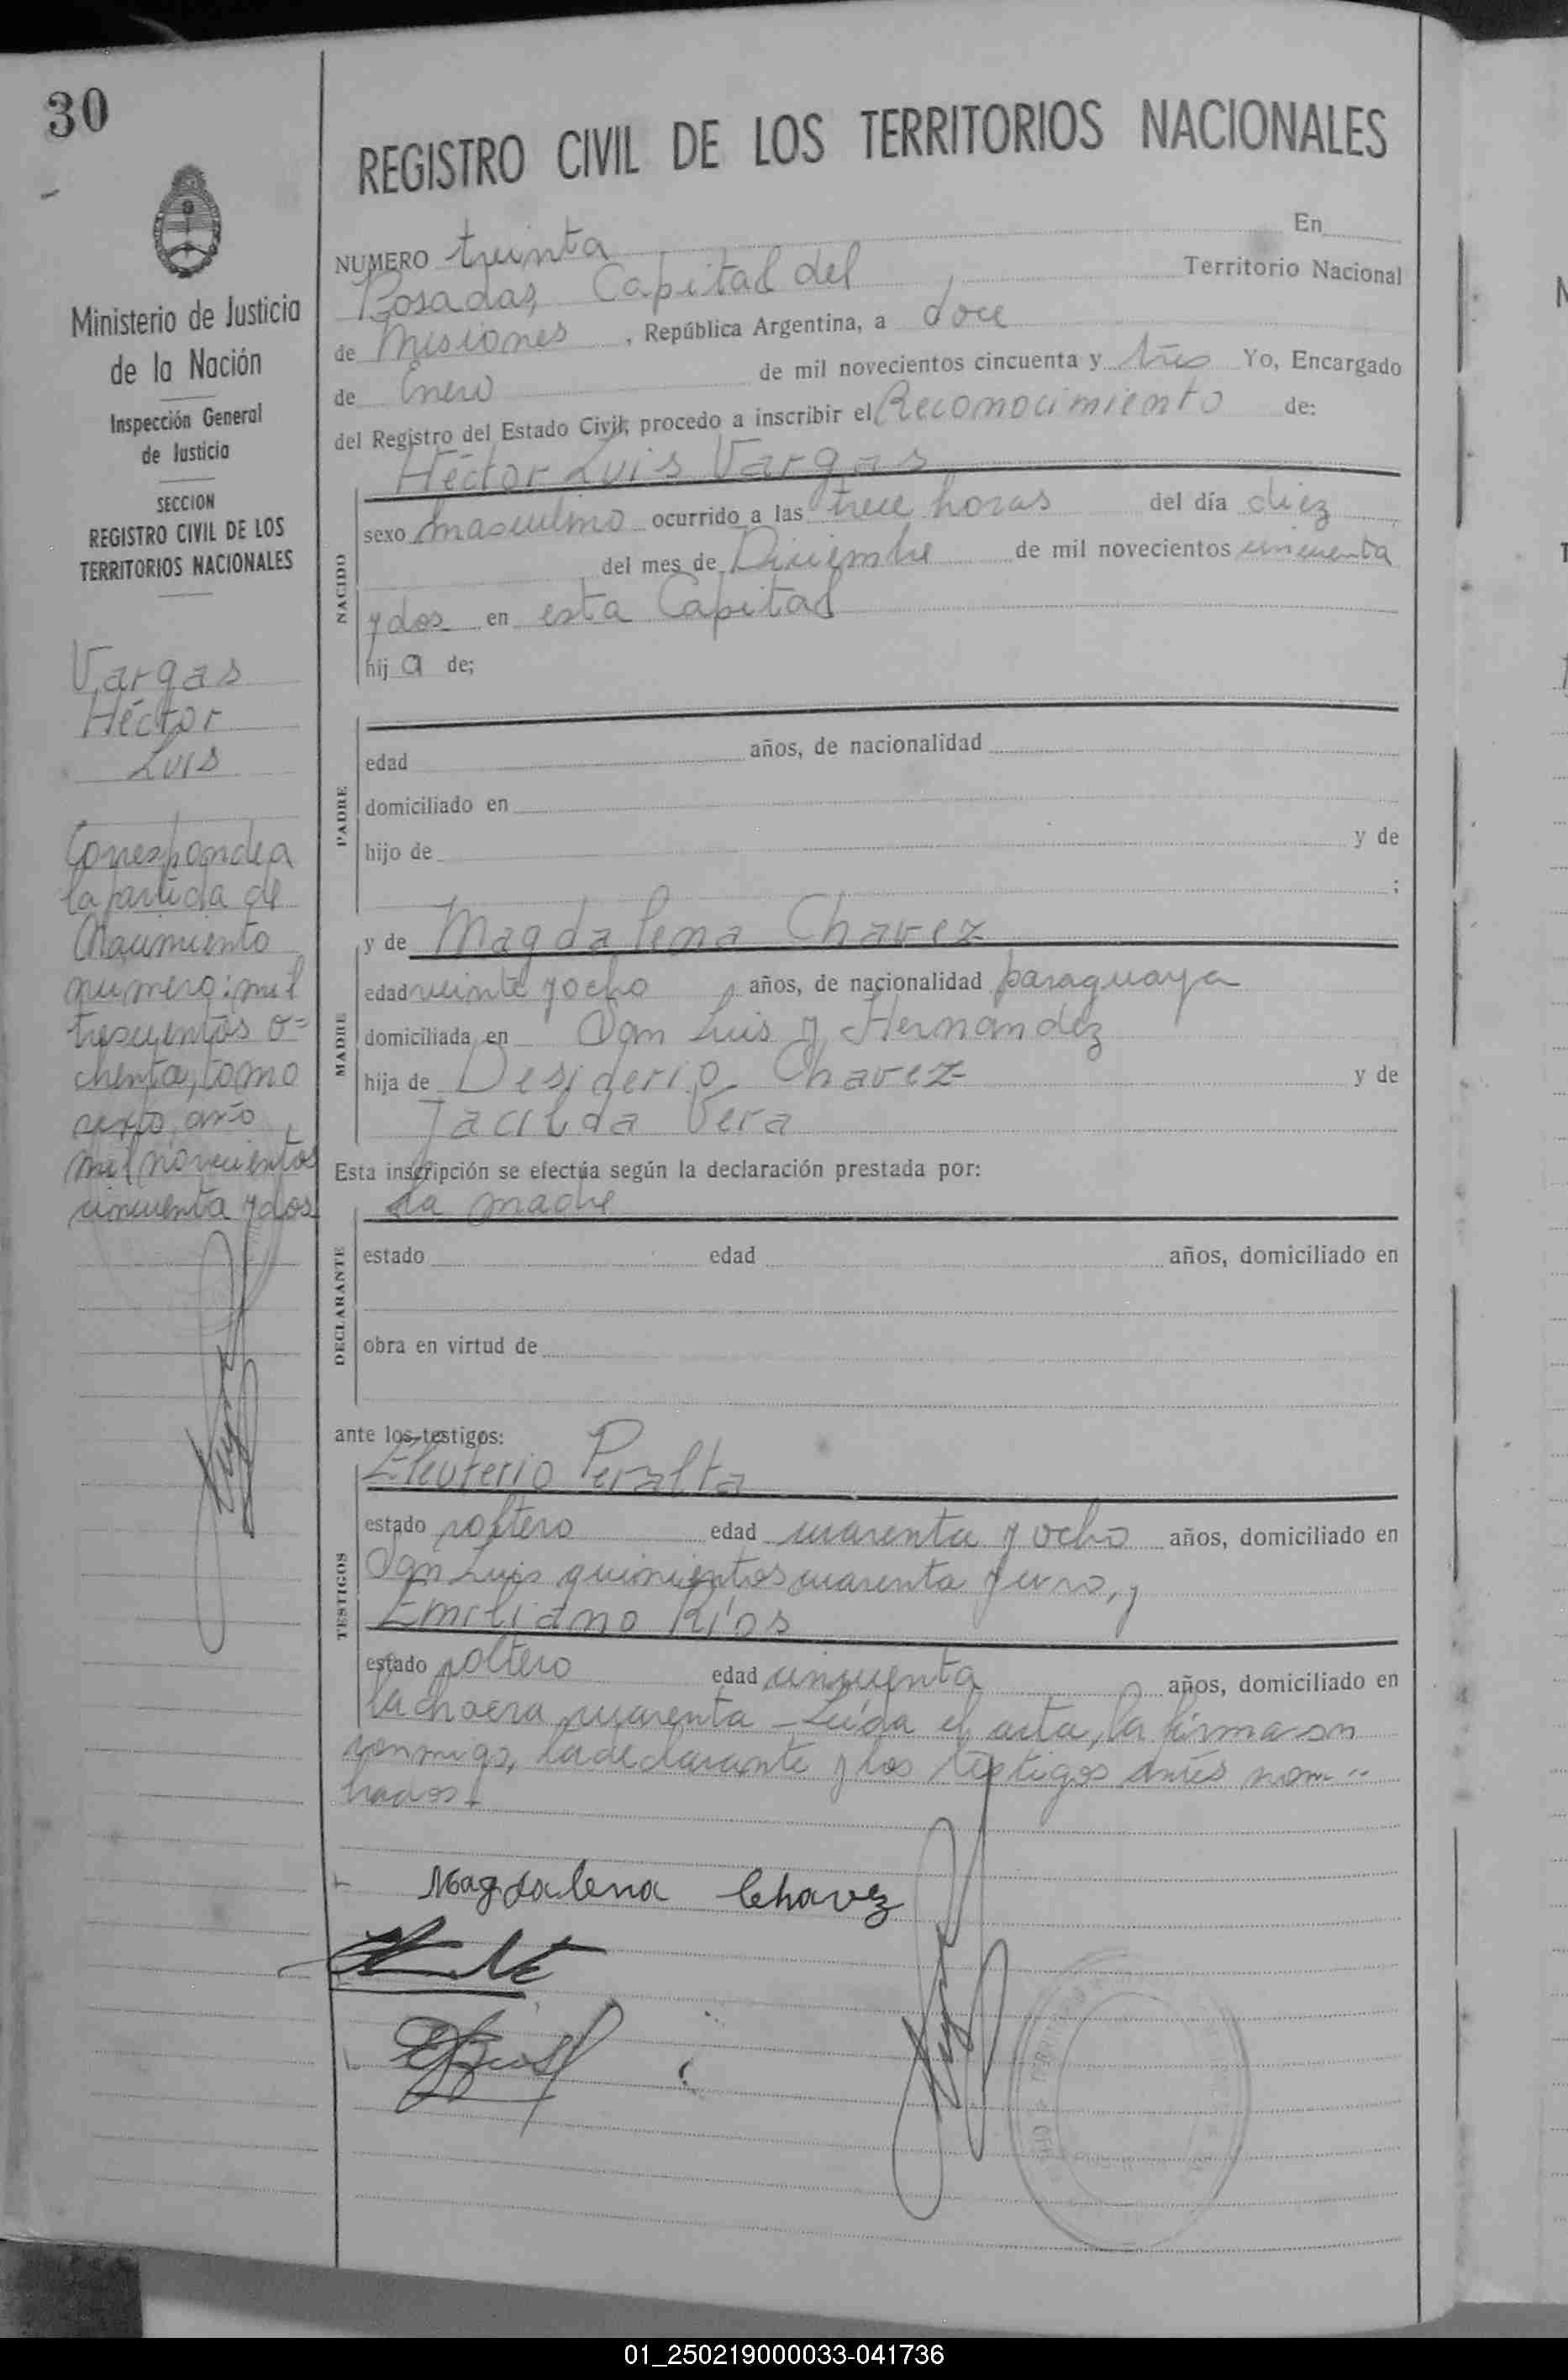 30
Ministerio de Justicia
de la Nación
Inspección General
de Justicia
SECCION
REGISTRO CIVIL DE LOS
TERRITORIOS NACIONALES
Vargas
Héctor
Luis
Corresponde a
la partida de
Nacimiento
numero: mil
trescientos o=
chenta, tomo
sexto, año
mil novecientos
cincuenta y dos
REGISTRO CIVIL DE LOS TERRITORIOS NACIONALES
NUMERO treinta En
Posadas, Capital del Territorio Nacional
de Misiones, República Argentina, a doce
de Enero de mil novecientos cincuenta y tres Yo, Encargado
del Registro del Estado Civil, procedo a inscribir el Reconocimiento de:
Héctor Luis Vargas
NACIDO
sexo masculino ocurrido a las trece horas del día diez
del mes de Diciembre de mil novecientos cincuenta
y dos en esta Capital
hij a de;
PADRE
edad años, de nacionalidad
domiciliado en
hijo de y de
;
MADRE
y de Magdalena Chavez
edad veinte y ocho años, de nacionalidad paraguaya
domiciliada en San Luis y Hernandez
hija de Desiderio Chavez y de
Jacilda Vera
Esta inscripción se efectúa según la declaración prestada por:
la madre
DECLARANTE
estado edad años, domiciliado en
obra en virtud de
ante los testigos:
TESTIGOS
Eleuterio Peralta
estado soltero edad cuarenta y ocho años, domiciliado en
San Luis quinientos cuarenta y uno, y
Emiliano Ríos
estado soltero edad cincuenta años, domiciliado en
la chacra cuarenta - Leída el acta, la firmaron
conmigo, la declarante y los testigos antes nom=
brados.
Magdalena Chavez
01_250219000033-041736